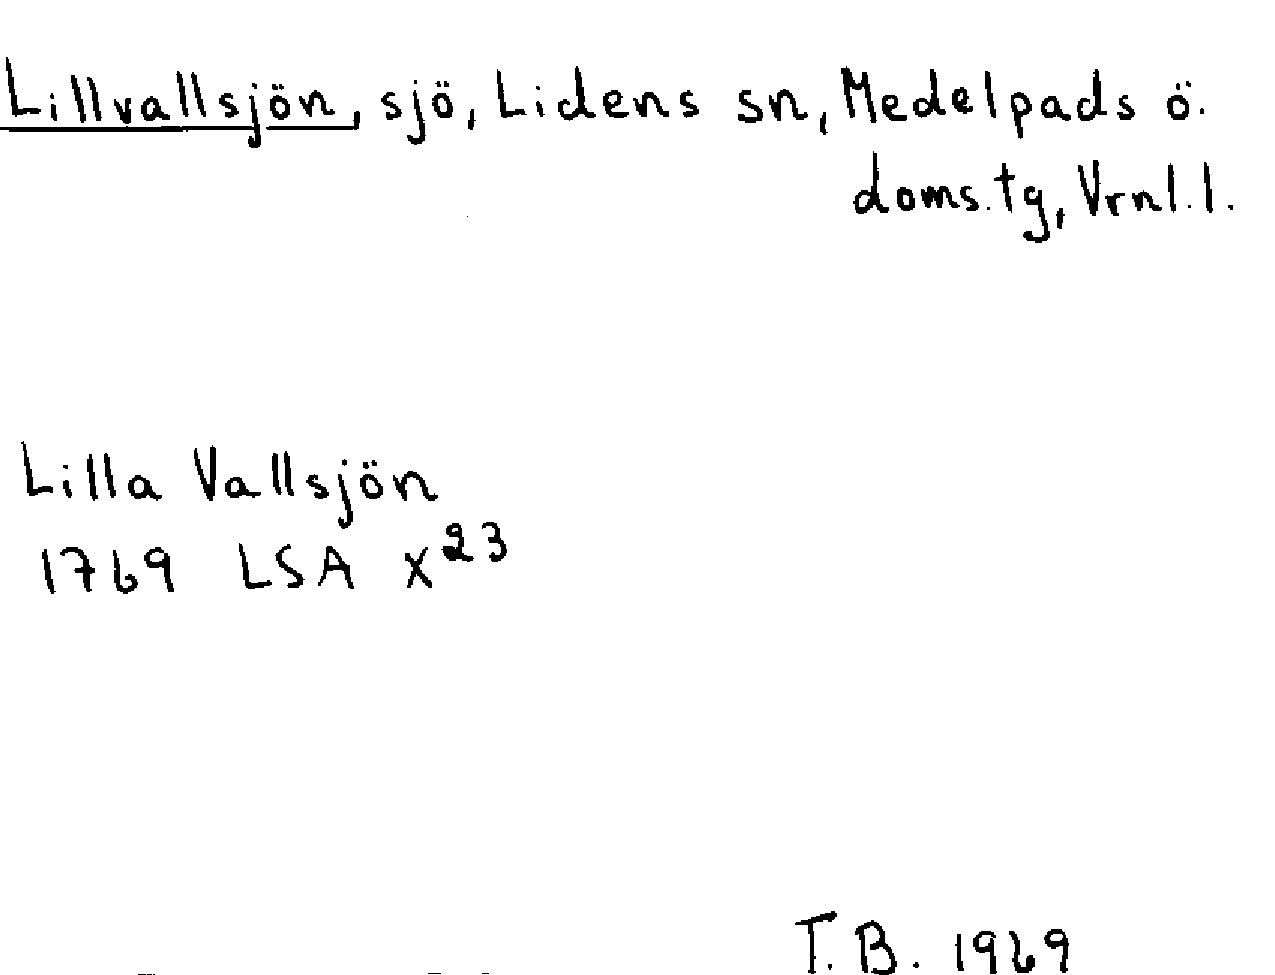 Lillvallsjön, sjö, Lidens sn, Medelpads ö.
doms.tg, Vrnl.l.
Lilla Vallsjön
1769 LSA X²³
T.B. 1969